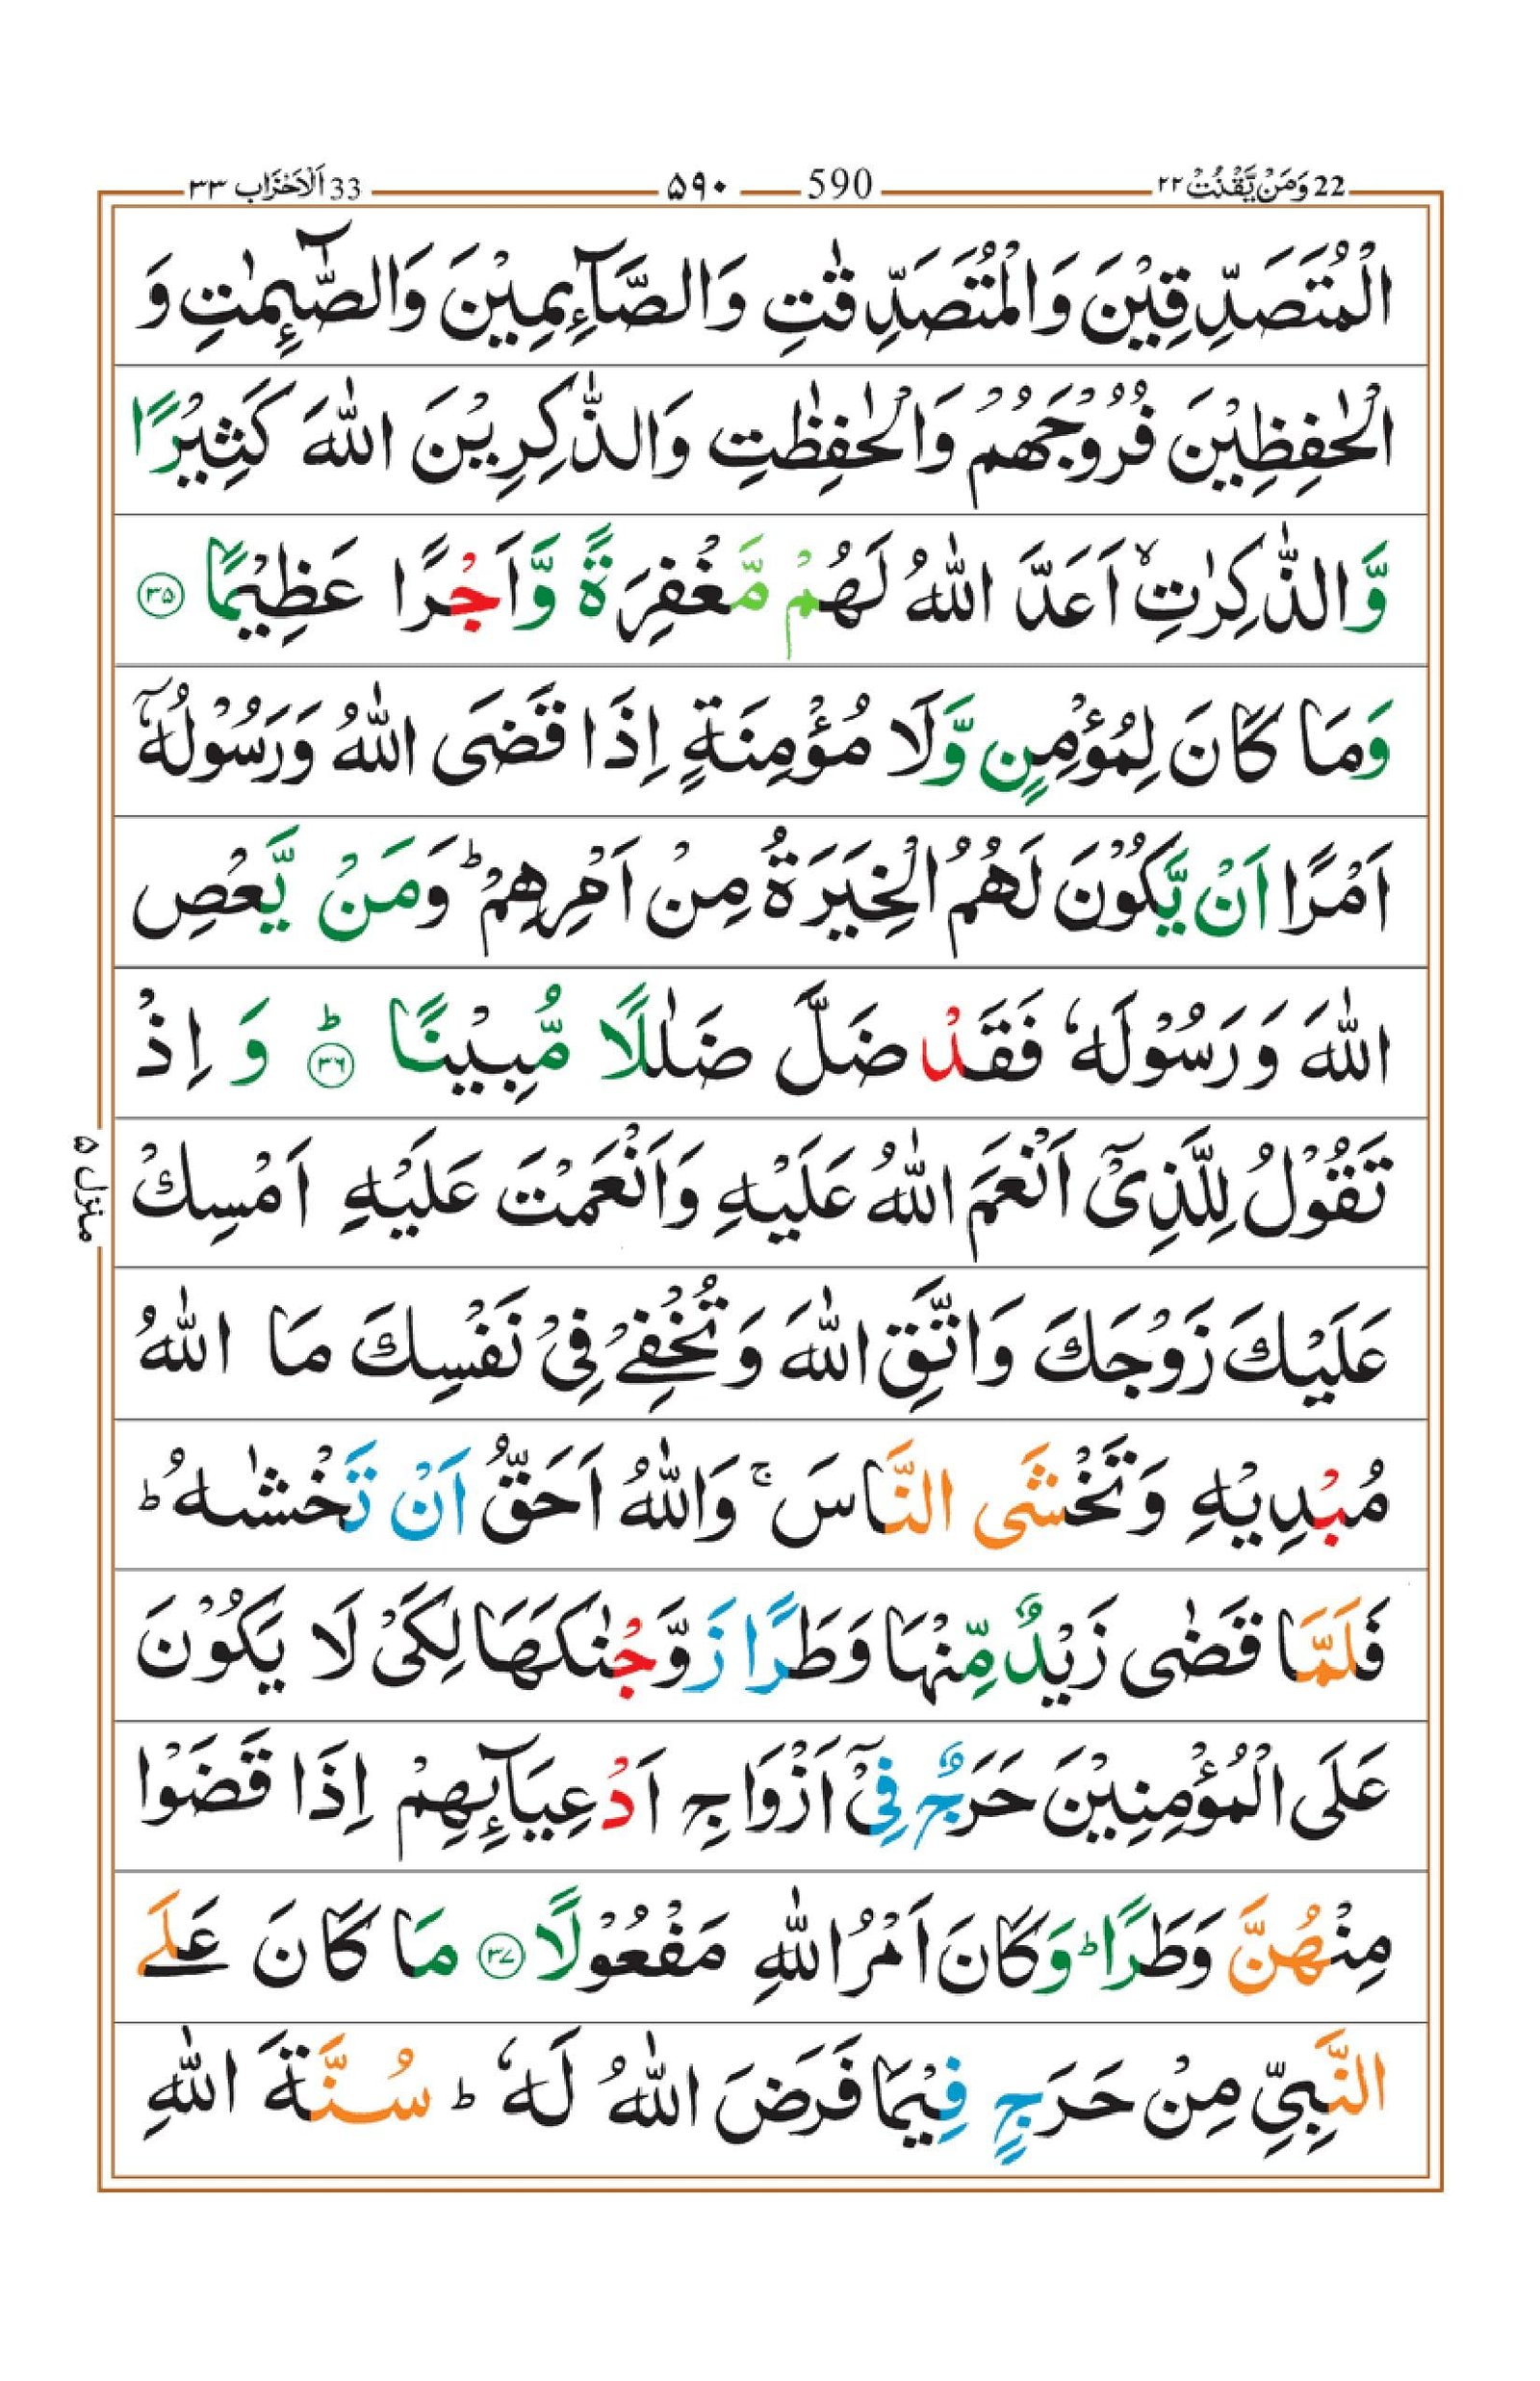 22 وَمَنْ يَّقْنُتْ ٢٢ 590 ۵۹۰ 33 اَلْاَحْزَاب ٣٣
الْمُتَصَدِّقِيْنَ وَالْمُتَصَدِّقٰتِ وَالصَّآئِمِيْنَ وَالصّٰٓئِمٰتِ وَ
الْحٰفِظِيْنَ فُرُوْجَهُمْ وَالْحٰفِظٰتِ وَالذّٰكِرِيْنَ اللّٰهَ كَثِيْرًا
وَّالذّٰكِرٰتِ ۙ اَعَدَّ اللّٰهُ لَهُمْ مَّغْفِرَةً وَّاَجْرًا عَظِيْمًا ۝۳۵
وَمَا كَانَ لِمُؤْمِنٍ وَّلَا مُؤْمِنَةٍ اِذَا قَضَى اللّٰهُ وَرَسُوْلُهٗٓ
اَمْرًا اَنْ يَّكُوْنَ لَهُمُ الْخِيَرَةُ مِنْ اَمْرِهِمْ ؕ وَمَنْ يَّعْصِ
اللّٰهَ وَرَسُوْلَهٗ فَقَدْ ضَلَّ ضَلٰلًا مُّبِيْنًا ؕ۝۳۶ وَ اِذْ
تَقُوْلُ لِلَّذِىْٓ اَنْعَمَ اللّٰهُ عَلَيْهِ وَاَنْعَمْتَ عَلَيْهِ اَمْسِكْ
عَلَيْكَ زَوْجَكَ وَاتَّقِ اللّٰهَ وَتُخْفِىْ فِىْ نَفْسِكَ مَا اللّٰهُ
مُبْدِيْهِ وَتَخْشَى النَّاسَ ۚ وَاللّٰهُ اَحَقُّ اَنْ تَخْشٰىهُ ؕ
فَلَمَّا قَضٰى زَيْدٌ مِّنْهَا وَطَرًا زَوَّجْنٰكَهَا لِكَىْ لَا يَكُوْنَ
عَلَى الْمُؤْمِنِيْنَ حَرَجٌ فِىْٓ اَزْوَاجِ اَدْعِيَآئِهِمْ اِذَا قَضَوْا
مِنْهُنَّ وَطَرًا ؕ وَكَانَ اَمْرُ اللّٰهِ مَفْعُوْلًا ۝۳۷ مَا كَانَ عَلَى
النَّبِىِّ مِنْ حَرَجٍ فِيْمَا فَرَضَ اللّٰهُ لَهٗ ؕ سُنَّةَ اللّٰهِ
منزل ۵